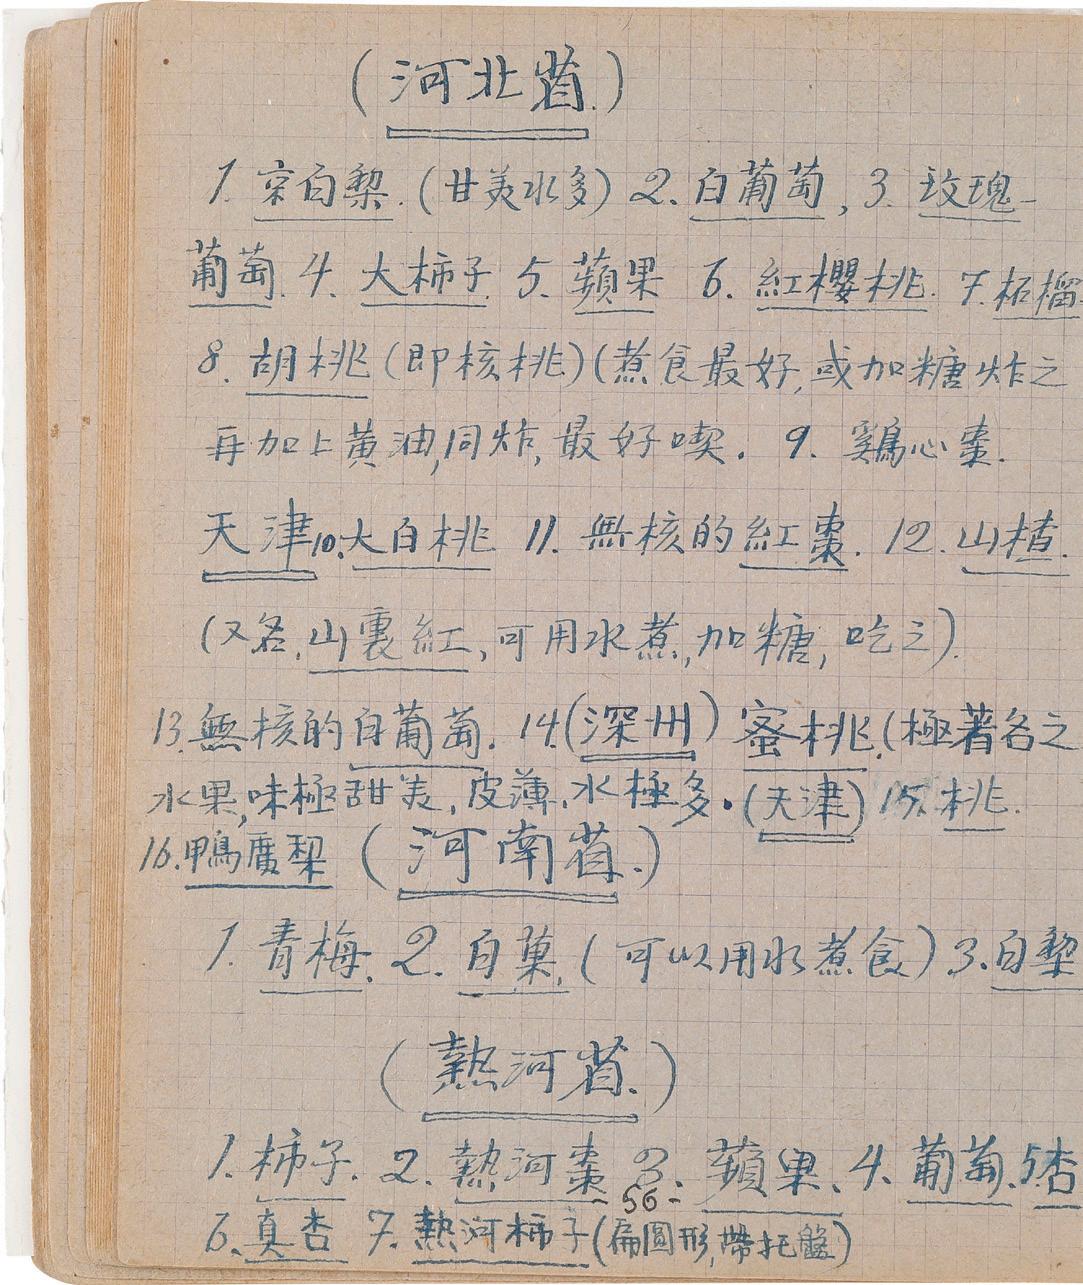 (河北省.)
1. 京白梨. (甘美水多) 2. 白葡萄, 3. 玫瑰-
葡萄. 4. 大柿子 5. 蘋果 6. 紅櫻桃. 7. 柘榴
8. 胡桃 (即核桃) (煮食最好, 或加糖炸之
再加上黄油, 同炸, 最好喫. 9. 鷄心棗.
天津 10. 大白桃 11. 無核的紅棗. 12. 山楂.
(又名, 山裏紅, 可用水煮, 加糖, 吃之).
13. 無核的白葡萄. 14. (深州) 蜜桃, (極著名之
水果, 味極甜美, 皮薄, 水極多. (天津) 15. 桃.
16. 鴨廣梨
(河南省.)
1. 青梅. 2. 白菓, (可以用水煮食) 3. 白梨
(熱河省.)
1. 柿子. 2. 熱河棗 3. 蘋果. 4. 葡萄. 5 杏
6. 真杏 7. 熱河柿子 (扁圓形, 帶托盤)
56-